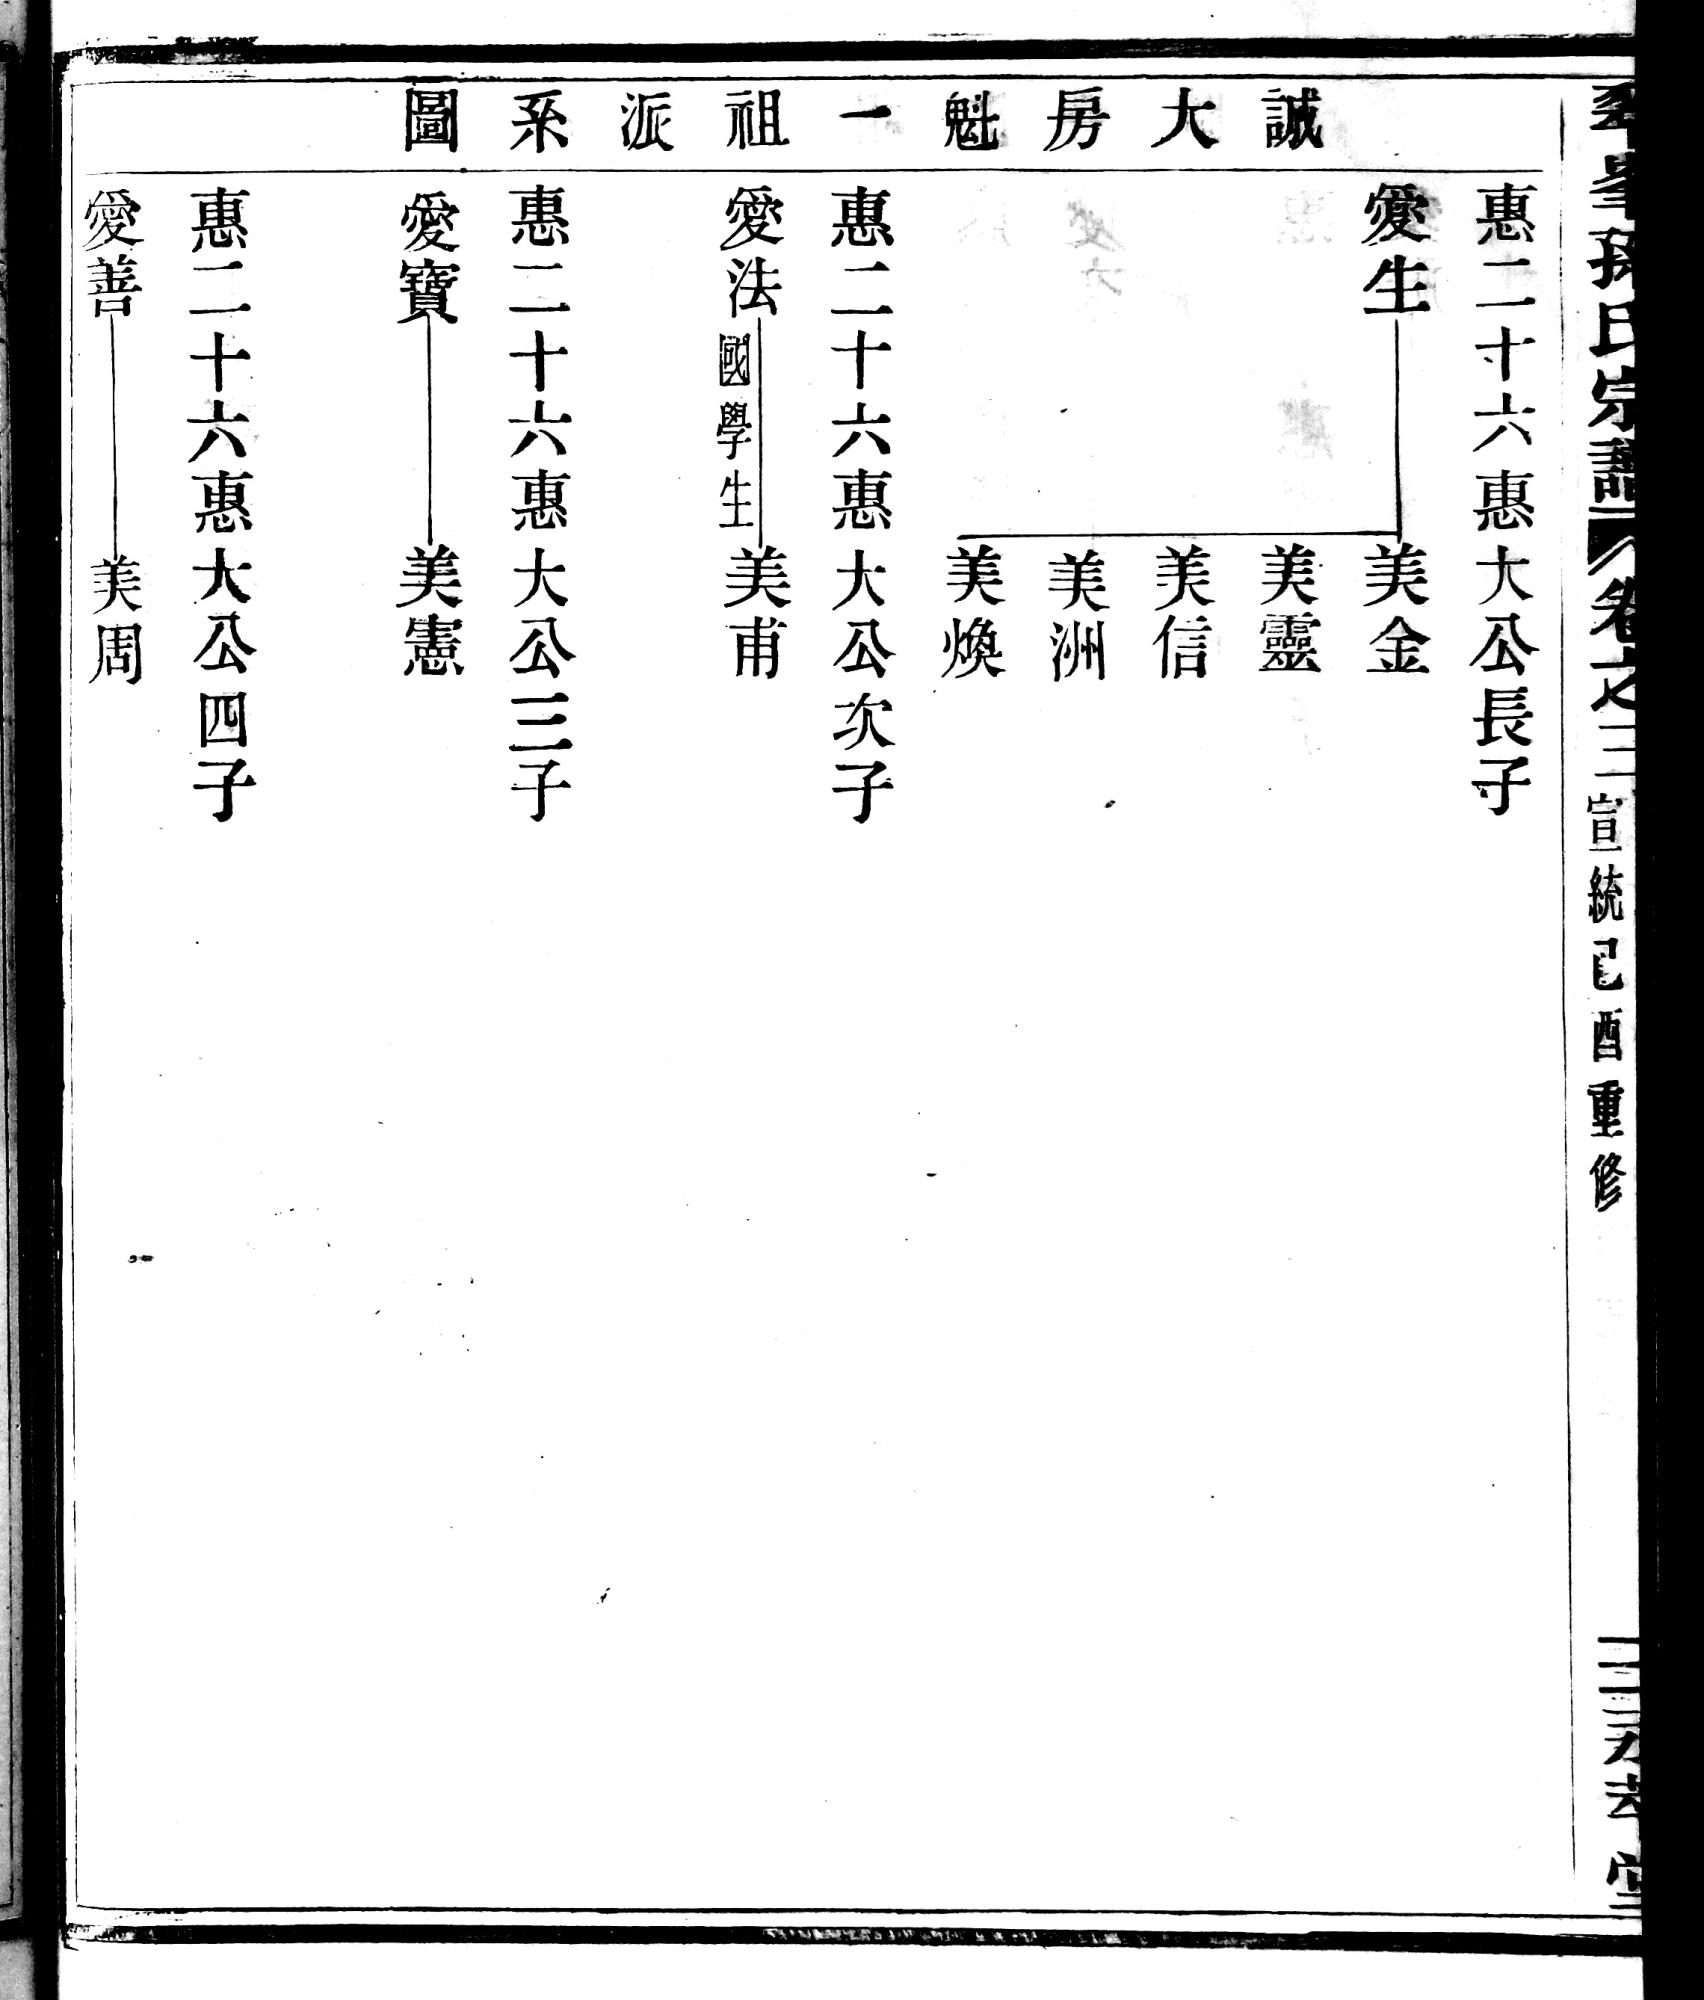 峯孫氏宗譜 卷之三 宣統己酉重修
堂
誠大房魁一祖派系圖
惠二十六惠大公長子
愛生 美金
美靈
美信
美洲
美煥
惠二十六惠大公次子
愛法 國學生 美甫
惠二十六惠大公三子
愛寶 美憲
惠二十六惠大公四子
愛善 美周